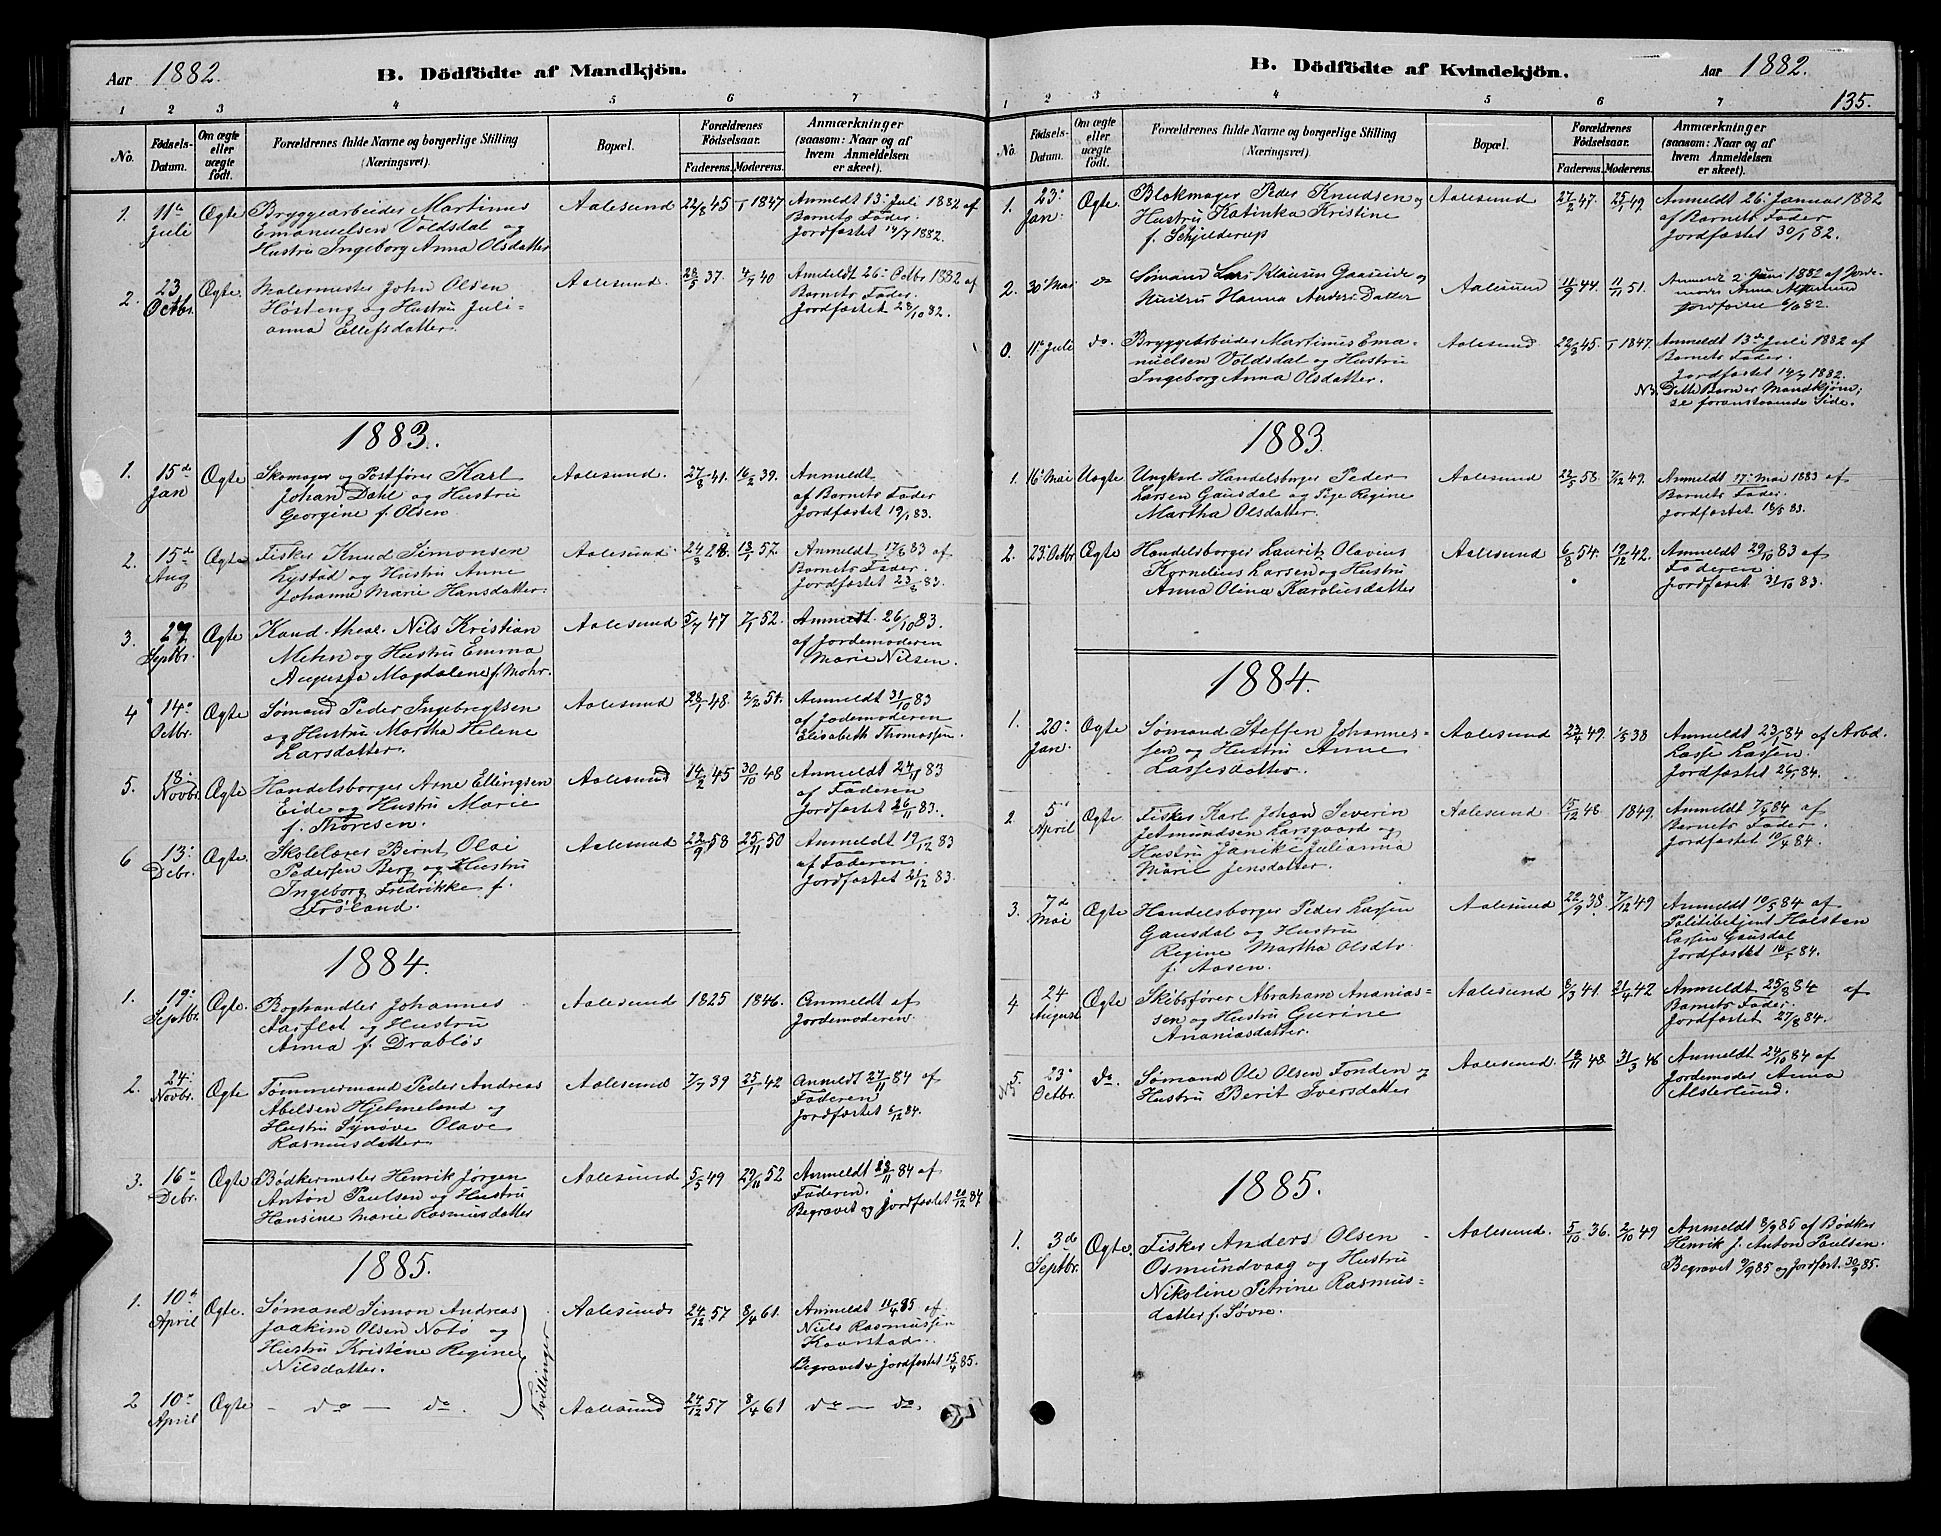 Aar 1882.
B. Dödfödte af Mandkjön.
1 2 3 4 5 6 7
No.
Födsels-
Datum.
Om ægte
eller
uægte
födt.
Forældrenes fulde Navne og borgerlige Stilling
(Næringsvei).
Bopæl.
Forældrenes
Födselsaar.
Faderens. Moderens.
Anmærkninger
(saasom: Naar og af
hvem Anmeldelsen
er skeet).
1. 11te Juli Ægte Bryggearbeider Martinus
Emanuelsen Voldsdal og
Hustru Ingeborg Anna Olsdatter
Aalesund 22/8 45 1847
Anmeldt 13. Juli 1882 af
Barnets Fader.
Jordfæstet 14/7 1882.
2. 23 Octbr. Ægte. Malermester John Olsen
Høsteng og Hustru Juli-
anna Ellefsdatter.
Aalesund. 28/5 37. 4/7 40
Anmeldt 26. Octbr 1882 af
Barnets Fader.
Jordfæstet 28/10 82.
1883.
1. 15de Jan Ægte Skomager og Postfører Karl
Johan Dahl og Hustru
Georgine f. Olsen.
Aalesund. 27/8 41. 16/2 39.
Anmeldt
af Barnets Fader
Jordfæstet 19/1 83.
2. 15de Aug Ægte Fisker Knud Simonsen
Lystad og Hustru Anne
Johanne Marie Hansdatter.
Aalesund. 24/8 28. 13/1 57.
Anmeldt 17/8 83 af
Barnets Fader.
Jordfæstet 23/8 83.
3. 27 Septbr. Ægte Kand. theol. Nils Kristian
Mehn og Hustru Emma
Augusta Magdalene f. Mohr.
Aalesund 5/7 47 7/1 52.
Anmeldt. 26/10 83.
af Jordemoderen
Marie Nilsen.
4 14. Octbr. Ægte Sømand Peder Ingebregtsen
og Hustru Martha Helene
Larsdatter.
Aalesund 28/1 48. 2/2 51.
Anmeldt 31/10 83
af Jordemoderen
Elisabeth Thomassen.
5. 18. Novbr Ægte Handelsborger Arne Ellingsen
Eide og Hustru Marie
f. Thoresen.
Aalesund 14/2 45 30/10 48
Anmeldt 24/11 83
af Faderen
Jordfæstet 26/11 83.
6 13. Debr. Ægte. Skolelærer Bernt Olai
Pedersen Berg og Hustru
Ingeborg Fredrikke f.
Frøland.
Aalesund 22/9 58 25/11 50
Anmeldt 19/12 83
af Faderen.
Jordfæstet 21/12 83.
1884.
1. 19. Septbr Ægte. Boghandler Johannes
Aasflot og Hustru
Anna f. Drabløs
Aalesund 1825 1846.
Anmeldt af
Jordemoderen.
2. 24. Novbr. Ægte Tømmermand Peder Andreas
Abelsen Hjelmeland og
Hustru Synøve Olave
Rasmusdatter.
Aalesund 7/7 39 25/1 42
Anmeldt 27/11 84 af
Faderen
Jordfæstet 6/12 84.
3. 16. Debr. Ægte Bødkermester Henrik Jørgen
Anton Paulsen og Hustru
Hansine Marie Rasmusdatter
Aalesund 5/5 49 29/11 52
Anmeldt 84 af
Faderen.
Begravet og Jordfæstet 20/12 84
1885.
1. 10de April Ægte. Sømand Simon Andreas
Joakim Olsen Notø og
Hustru Kristene Regine
Nilsdatter.
Tvillinger
Aalesund 24/12 57 8/4 61.
Anmeldt 11/4 85 af
Niels Rasmussen
Kaarstad.
Begravet & Jordfæstet 15/4 85.
2 10. April Ægte - do - do.
Aalesund 24/12 57 8/4 61 do - do.
B. Dödfödte af Kvindekjön.
Aar 1882.
135.
1 2 3 4 5 6 7
No.
Födsels-
Datum.
Om ægte
eller
uægte
födt.
Forældrenes fulde Navne og borgerlige Stilling
(Næringsvei).
Bopæl.
Forældrenes
Födselsaar.
Faderens. Moderens.
Anmærkninger
(saasom: Naar og af
hvem Anmeldelsen
er skeet).
1. 23. Jan. Ægte. Blokmager Peder Knudsen og
Hustru Katinka Kristine
f. Schjelderup
Aalesund 27/2 47. 25/1 49.
Anmeldt 26. Januar 1882
af Barnets Fader
Jordfæstet 30/1 82.
2. 30. Mai do Sømand Lars Klausen Gaaseide og
Hustru Hanna Anders Datter
Aalesund 11/9 44. 11/11 51.
Anmeldt 2. Juni 1882 af Jorde-
moder Anna
Jordfæstet 6/6 82.
0. 11. Juli do. Bryggearbeider Martinus Ema-
nuelsen Voldsdal og Hustru
Ingeborg Anna Olsdatter.
Aalesund 22/8 45. 1847.
Anmeldt 13de Juli 1882 af
Barnets Fader.
Jordfæstet 14/7 1882.
NB. Dette Barn er Mandkjøn;
se foranstaaende Side.
1883
1. 16. Mai Uægte Ungkarl Handelsborger Peder
Larsen Gausdal og Pige Regine
Martha Olsdatter.
Aalesund 22/5 58. 7/12 49.
Anmeldt 17. Mai 1883 af
Barnets Fader.
Jordfæstet 18/5 83.
2. 23. Octbr Ægte Handelsborger Lauritz Olavius
Kornelius Larsen og Hustru
Anna Olina Karolusdatter
Aalesund 6/8 54. 19/12 42.
Anmeldt 29/10 83 af
Faderen.
Jordfæstet 31/10 83.
1884.
1. 20. Jan. Ægte Sømand Steffen Johannes-
sen og Hustru Anne
Lassesdatter.
Aalesund 23/4 49. 1/5 38
Anmeldt 23/1 84 af Arbd.
Lasse Lassen.
Jordfæstet 26/1 84.
2 5. April Ægte. Fisker Karl Johan Severin
Jetmundsen Larsgaard og
Hustru Janike Julianna
Marie Jensdatter.
Aalesund 15/12 48. 1849.
Anmeldt 7/4 84 af
Barnets Fader.
Jordfæstet 10/4 84.
3. 7de Mai Ægte Handelsborger Peder Larsen
Gausdal og Hustru
Regine Martha Olsdtr.
f. Aasen.
Aalesund 22/9 38. 7/12 49
Anmeldt 10/5 84 af
Politibetjent Halsten
Larsen Gausdal
Jordfæstet 10/5 84.
4 24 August Ægte Skibsfører Abraham Ananias-
sen og Hustru Gurine
Ananiasdatter.
Aalesund 8/3 41. 21/4 42
Anmeldt 25/8 84 af
Barnets Fader.
Jordfæstet 27/8 84.
5. 23. Octbr. do. Sømand Ole Olsen Fonden og
Hustru Berit Iversdatter
Aalesund. 18/11 48. 31/3 46
Anmeldt 24/10 84 af
Jordemoder Anna
Alsterlund.
1885.
1. 3de Septbr. Ægte. Fisker Anders Olsen
Osmundvaag og Hustru
Nikoline Petrine Rasmus-
datter f. Søvre.
Aalesund 5/10 36. 2/10 49
Anmeldt 8/9 85 af Bødker
Henrik J. Anton Paulsen.
Begravet 9/9 85 og Jordfæst. 30/9 85.